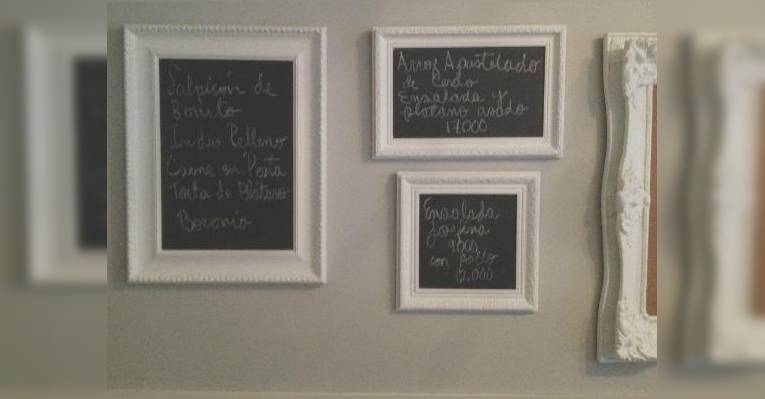 Salpicón de
Bonito
Indio Relleno
Carne en Posta
Torta de Plátano
Boronía
Arroz Apastelado
de Cerdo
Ensalada y
plátano asado
17.000
Ensalada
Josefina
9000
con pollo
12.000